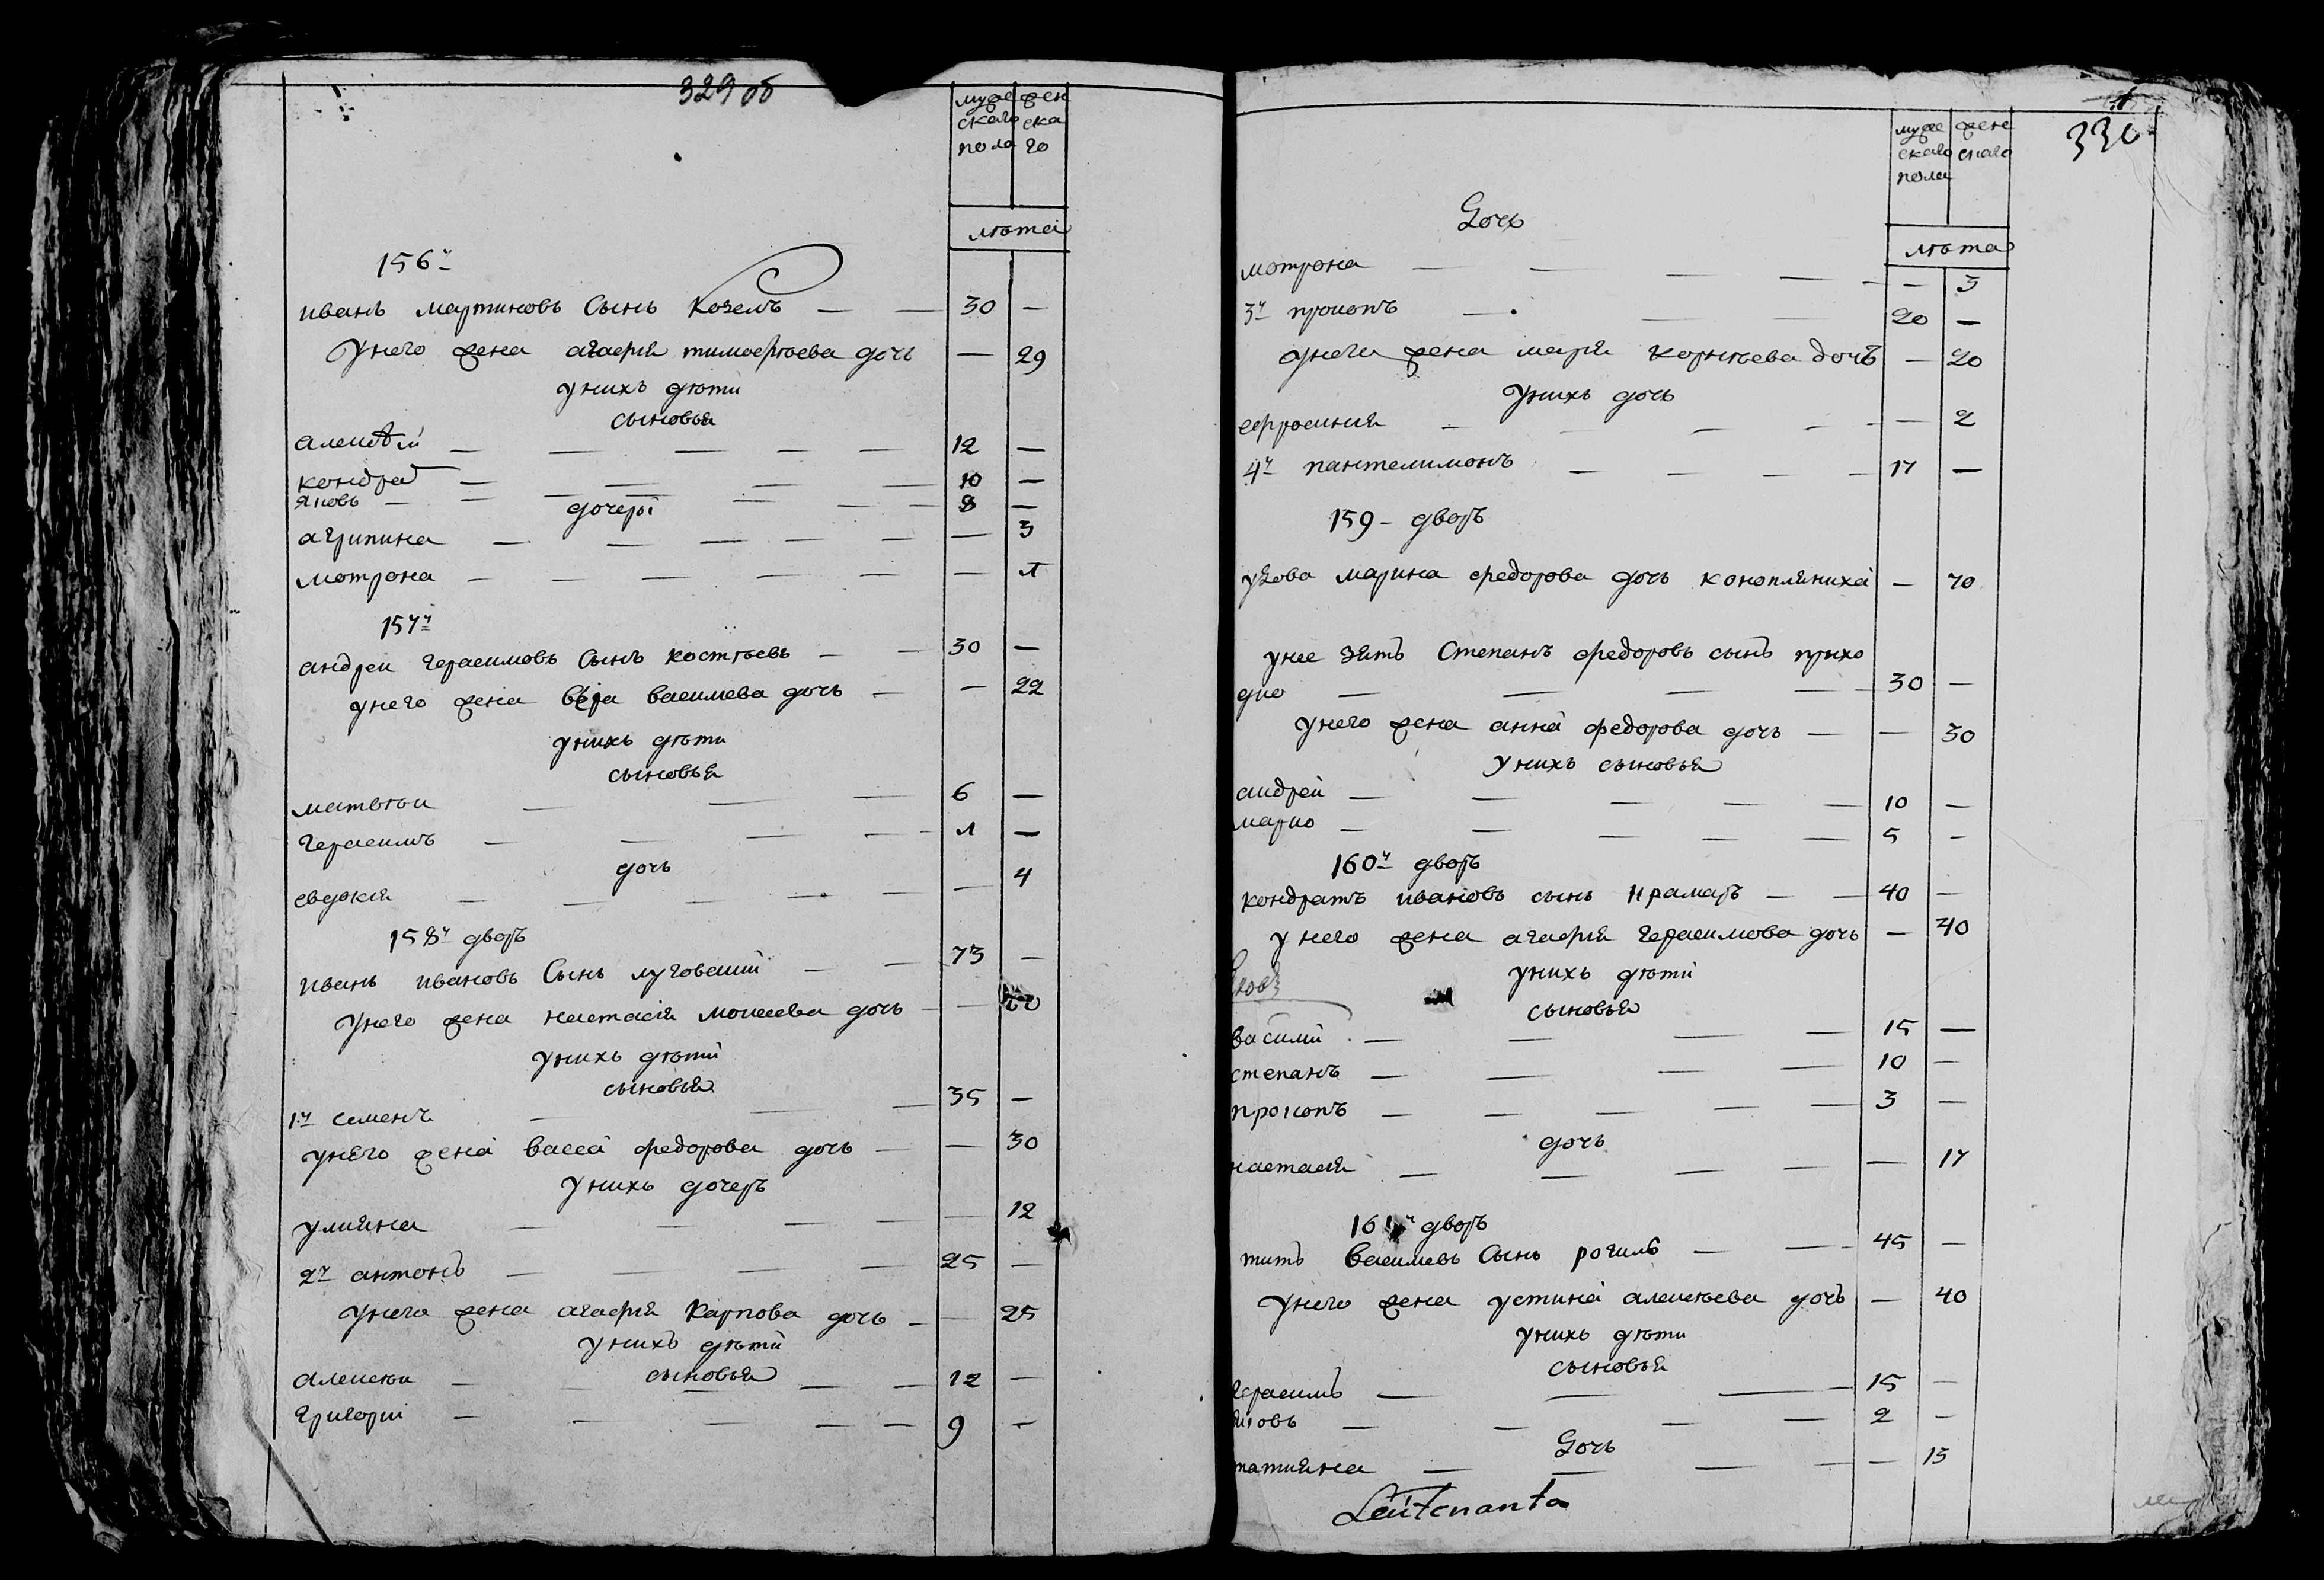 329 об
мужескаго пола
женскаго
лѣта
156й
иванъ мартиновъ Сынъ Козелъ — — 30 —
Унего жена агафия тимофѣева дочь — 29
унихъ дѣти
сыновья
алеѯѣй — — — — — 12 —
кондрат — — — — 10 —
яковъ — — — — 8 —
дочери
агрипина — — — — — — 3
мотрона — — — — — — л
157й
андреи герасимовъ Сынъ костѣевъ — — 30 —
унего жена вера василева дочь — — 22
унихъ дѣти
сыновья
матвѣи — — — 6 —
герасимъ — — — — л —
дочь
евдокия — — — — — — 4
158й дворъ
иванъ ивановъ Сынъ луговаий — — 73 —
Унего жена настасія моисеева дочь — —
унихъ дѣти
сыновья
1й семенъ — — — 35 —
унего жена васса федорова дочь — — 30
Унихъ дочеръ
улияна — — — — — 12
2й антонъ — — — — 25 —
Унего жена агафия Карпова дочь — — 25
унихъ дѣти
сыновья
алексѣи — — — — — 12 —
григории — — — — — 9 —
330
мужескаго пола
женскаго
лѣта
Дочь
мотрона — — — — — — 3
3й прокопъ — — — 20 —
унего жена мария корнѣева дочъ — 20
Унихъ дочь
ефросиния — — — — — — 2
4й пантелимонъ — — — — 17 —
159 – дворъ
удова марина федорова дочь конопляниха — 70
унее зять Степанъ федоровъ сынъ прихо
дко — — — — 30 —
Унего жена анна федорова дочь — — 30
Унихъ сыновья
андрей — — — — — 10 —
марко — — — — — 5 —
160й дворъ
кондратъ ивановъ сынъ крамаръ — — 40 —
унего жена агафия герасимова дочь — 40
унихъ дѣти
сыновья
василий — — — — 15 —
степанъ — — — — 10 —
прокопъ — — — — — 3 —
дочь
настасия — — — — — 17
161й дворъ
титъ василевъ Сынъ рогиль — — 45 —
Унего жена устина алексѣева дочъ — 40
унихъ дѣти
сыновья
герасимъ — — — 15 —
яковъ — — — — 2 —
Дочь
татияна — — — — — 13
Leütenanta